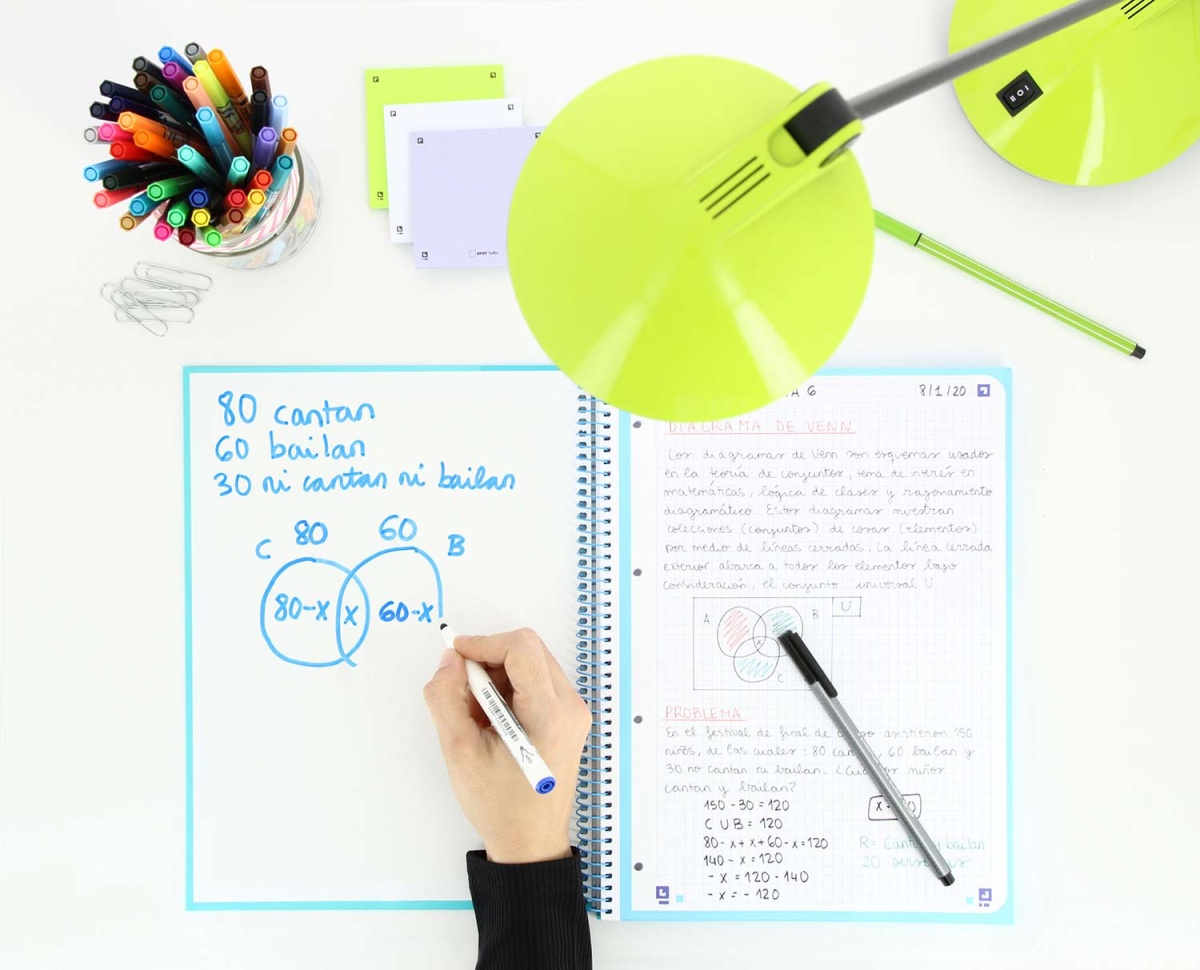 80 cantan
60 bailan
30 ni cantan ni bailan
80 60
C B
80-x x 60-x
A 6 8/1/20
DIAGRAMA DE VENN
Los diagramas de Venn son esquemas usados
en la teoría de conjuntos, tema de interés en
matemáticas, lógica de clases y razonamiento
diagramático. Estos diagramas muestran
colecciones (conjuntos) de cosas (elementos)
por medio de líneas cerradas. La línea cerrada
exterior abarca a todos los elementos bajo
consideración, el conjunto universal U.
A B U
x
C
PROBLEMA
En el festival de final de asistieron 150
niños, de los cuales: 80 60 bailan y
30 no cantan ni bailan. niños
cantan y bailan?
150 - 30 = 120
C U B = 120
80 - x + x + 60 - x = 120
140 - x = 120
- x = 120 - 140
- x = - 120
R= y bailan
20